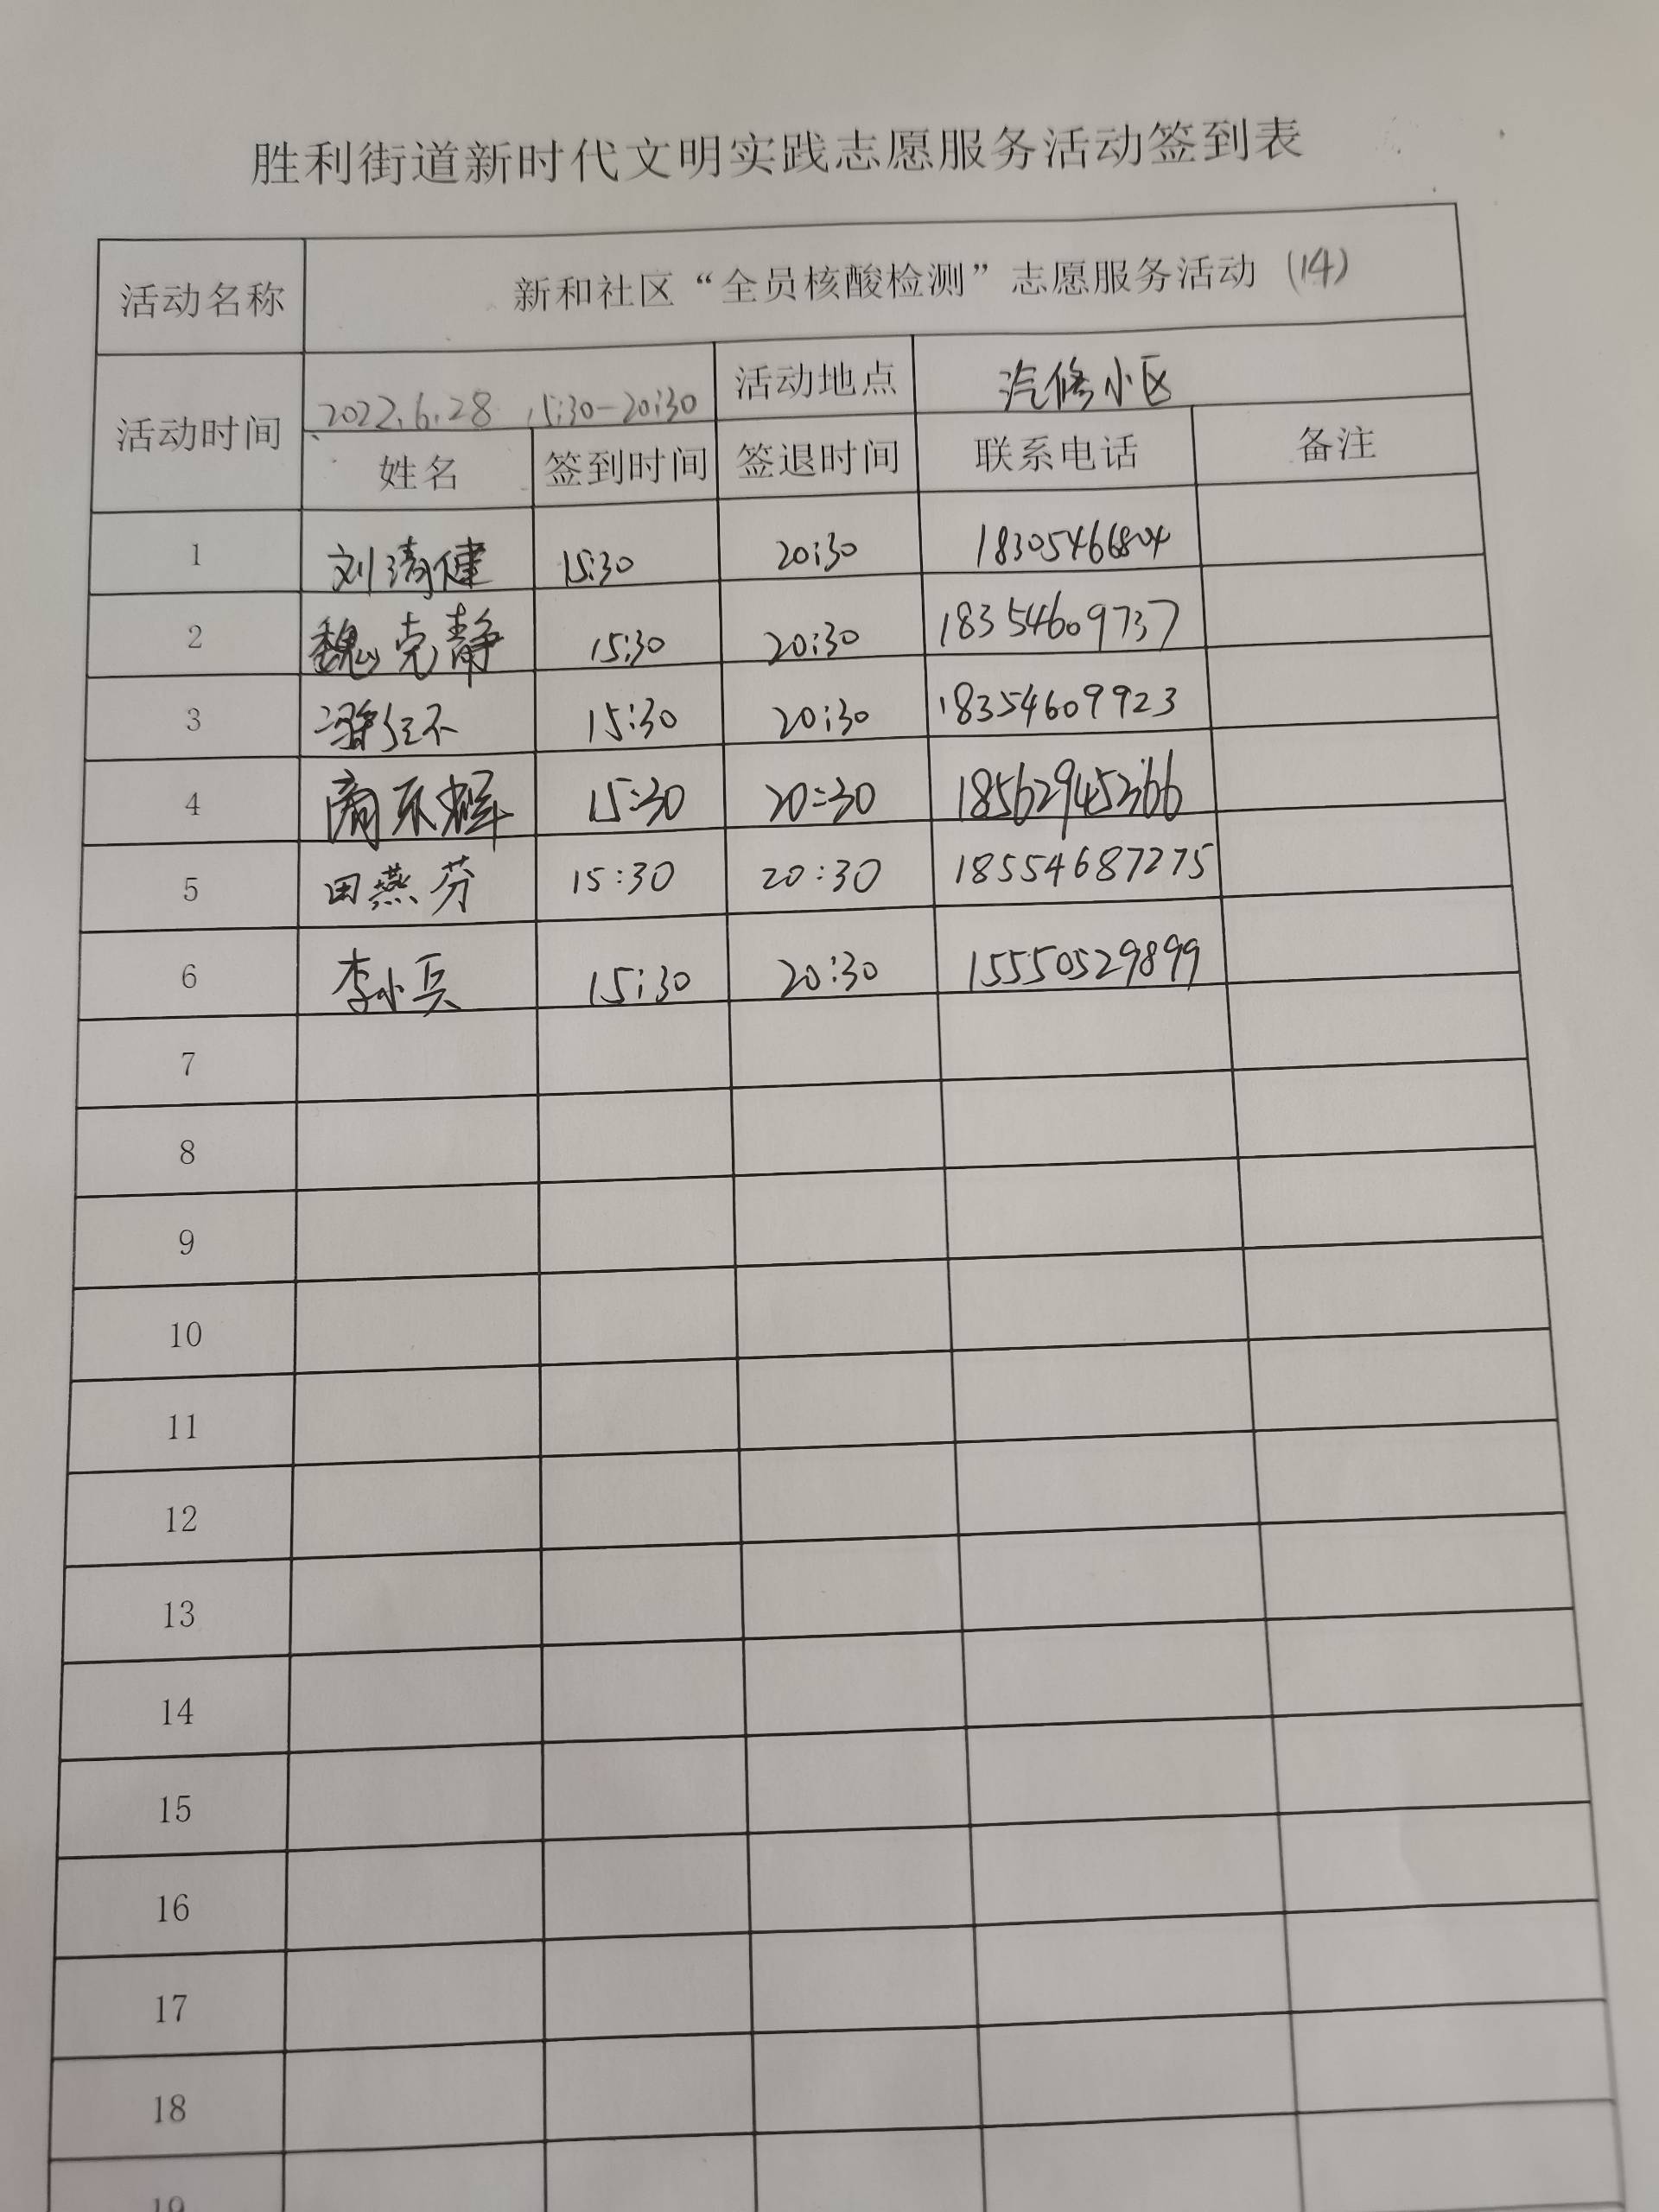 胜利街道新时代文明实践志愿服务活动签到表
活动名称 新和社区“全员核酸检测”志愿服务活动 (14)
活动时间 2022.6.28 15:30-20:30 活动地点 汽修小区
姓名 签到时间 签退时间 联系电话 备注
1 刘清健 15:30 20:30 18305466804
2 魏克静 15:30 20:30 18354609737
3 15:30 20:30 18354609923
4 15:30 20:30 18562945266
5 田燕芬 15:30 20:30 18554687275
6 李小兵 15:30 20:30 15550529899
7
8
9
10
11
12
13
14
15
16
17
18
19